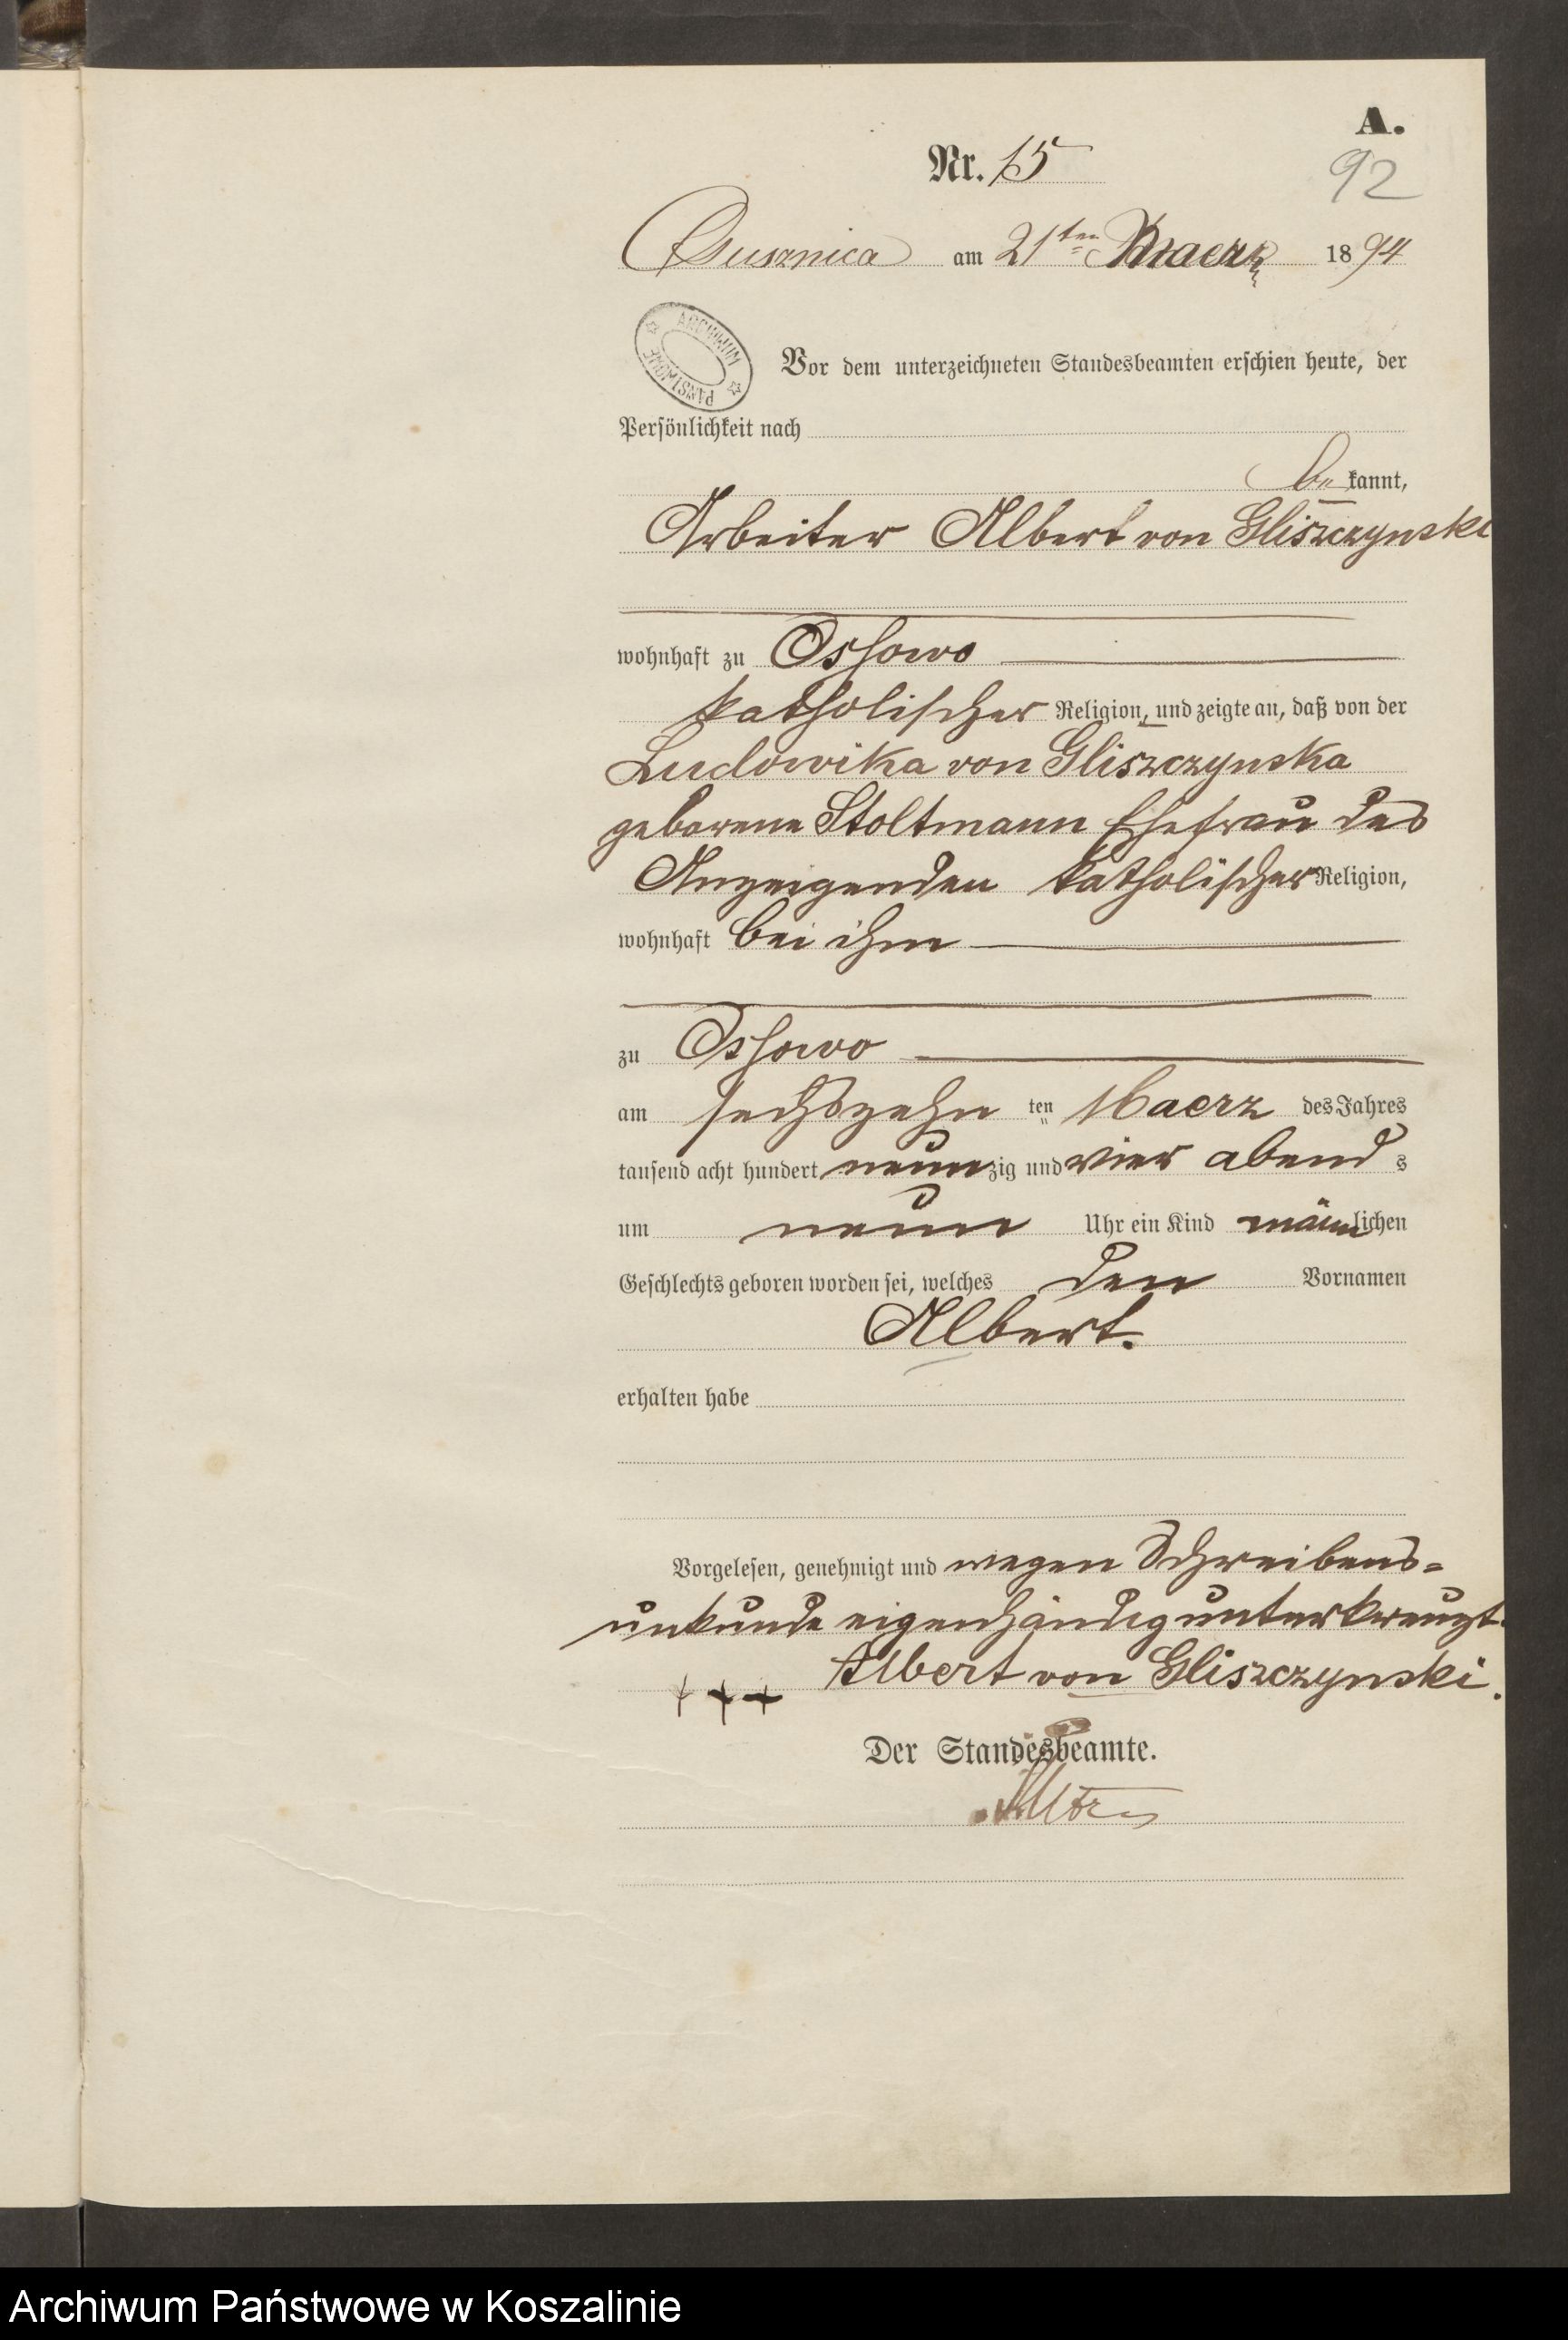 A.
Nr. 15
92
am 21ten Maerz 1894
ARCHIWUM PAŃSTWOWE
Vor dem unterzeichneten Standesbeamten erschien heute, der
Persönlichkeit nach
be kannt,
Arbeiter Albert von Gliszczynski
wohnhaft zu Ossowo
katholischer Religion, und zeigte an, daß von der
Ludowika von Gliszczynska
geborene Stoltmann Ehefrau des
Anzeigenden katholischer Religion,
wohnhaft bei ihm
zu Ossowo
am sechszehn ten Maerz des Jahres
tausend acht hundert neunzig und vier abend s
um neun Uhr ein Kind männlichen
Geschlechts geboren worden sei, welches den Vornamen
Albert.
erhalten habe
Vorgelesen, genehmigt und wegen Schreibens-
unkunde eigenhändig unterkreuzt.
+++ Albert von Gliszczynski.
Der Standesbeamte.
Archiwum Państwowe w Koszalinie